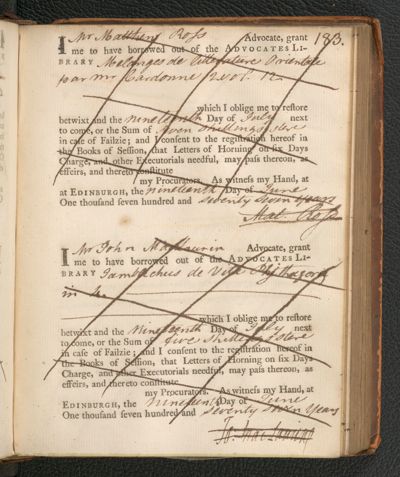 183.
I Mr Matthew Ross Advocate, grant
me to have borrowed out of the ADVOCATES LI-
BRARY Melanges de Litterature Orientale
par mr Cardonne 2 vol. 12.
which I oblige me to restore
betwixt and the nineteenth Day of July next
to come, or the Sum of Seven Shillings stere
in case of Failzie; and I consent to the registration hereof in
the Books of Session, that Letters of Horning on six Days
Charge, and other Executorials needful, may pass thereon, as
effeirs, and thereto constitute
my Procurators. As witness my Hand, at
at EDINBURGH, the nineteenth Day of June
One thousand seven hundred and seventy seven years
Mat. Ross
I Mr John MacLaurin Advocate, grant
me to have borrowed out of the ADVOCATES LI-
BRARY Iamblichus de Vita Pythagoræ
in
which I oblige me to restore
betwixt and the nineteenth Day of July next
to come, or the Sum of five Shillings stere
in case of Failzie; and I consent to the registration hereof in
the Books of Session, that Letters of Horning on six Days
Charge, and other Executorials needful, may pass thereon, as
effeirs, and thereto constitute
my Procurators. As witness my Hand, at
EDINBURGH, the nineteenth Day of June
One thousand seven hundred and seventy seven years
Jo: MacLaurin